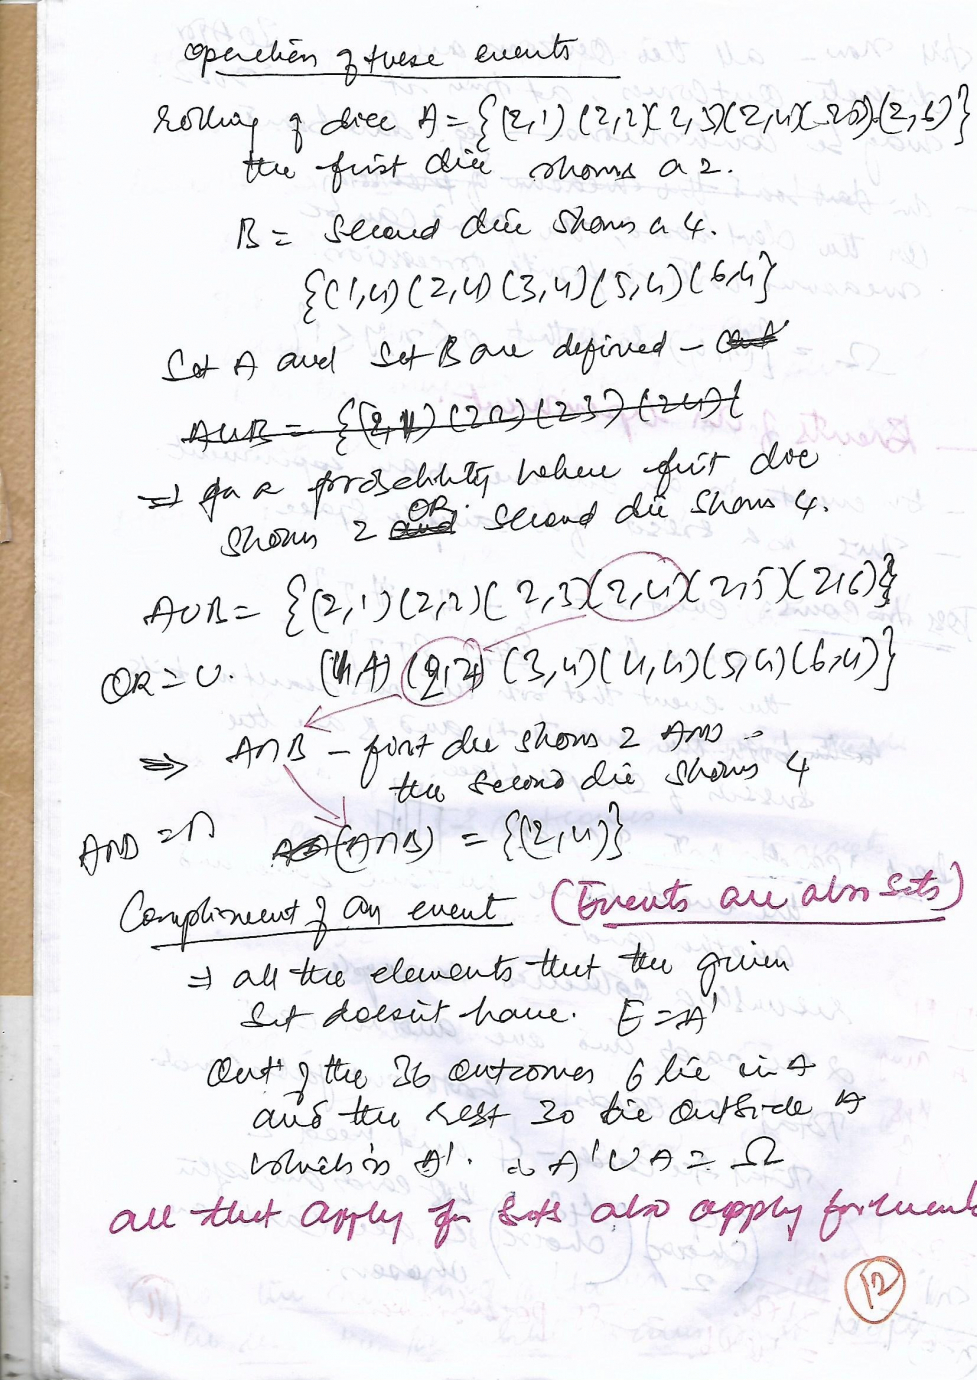 operation of these events
Rolling of dice A = {(2,1) (2,2)(2,3)(2,4)(2,5)(2,6)}
the first die shows a 2.
B = Second die shows a 4.
{(1,4)(2,4)(3,4)(5,4)(6,4)}
Set A and Set B are defined -
AUB = {(2,1)(2,2)(2,3)(2,4)(
⇒ for a probability where first die
shows 2 and OR second die shows 4.
AUB = {(2,1)(2,2)(2,3)(2,4)(2,5)(2,6)}
OR = U. (4,4) (3,4)(4,4)(5,4)(6,4)}
⇒ A∩B - first die shows 2 AND -
the second die shows 4
AND = ∩ (A∩B) = {(2,4)}
Complement of an event (Events are also Sets)
⇒ all the elements that the given
Set doesn't have. E = A'
Out of the 36 outcomes 6 lie in A
and the rest 30 lie outside A
which is A'. ∴ A' U A = Ω
all that apply for sets also apply for events
12